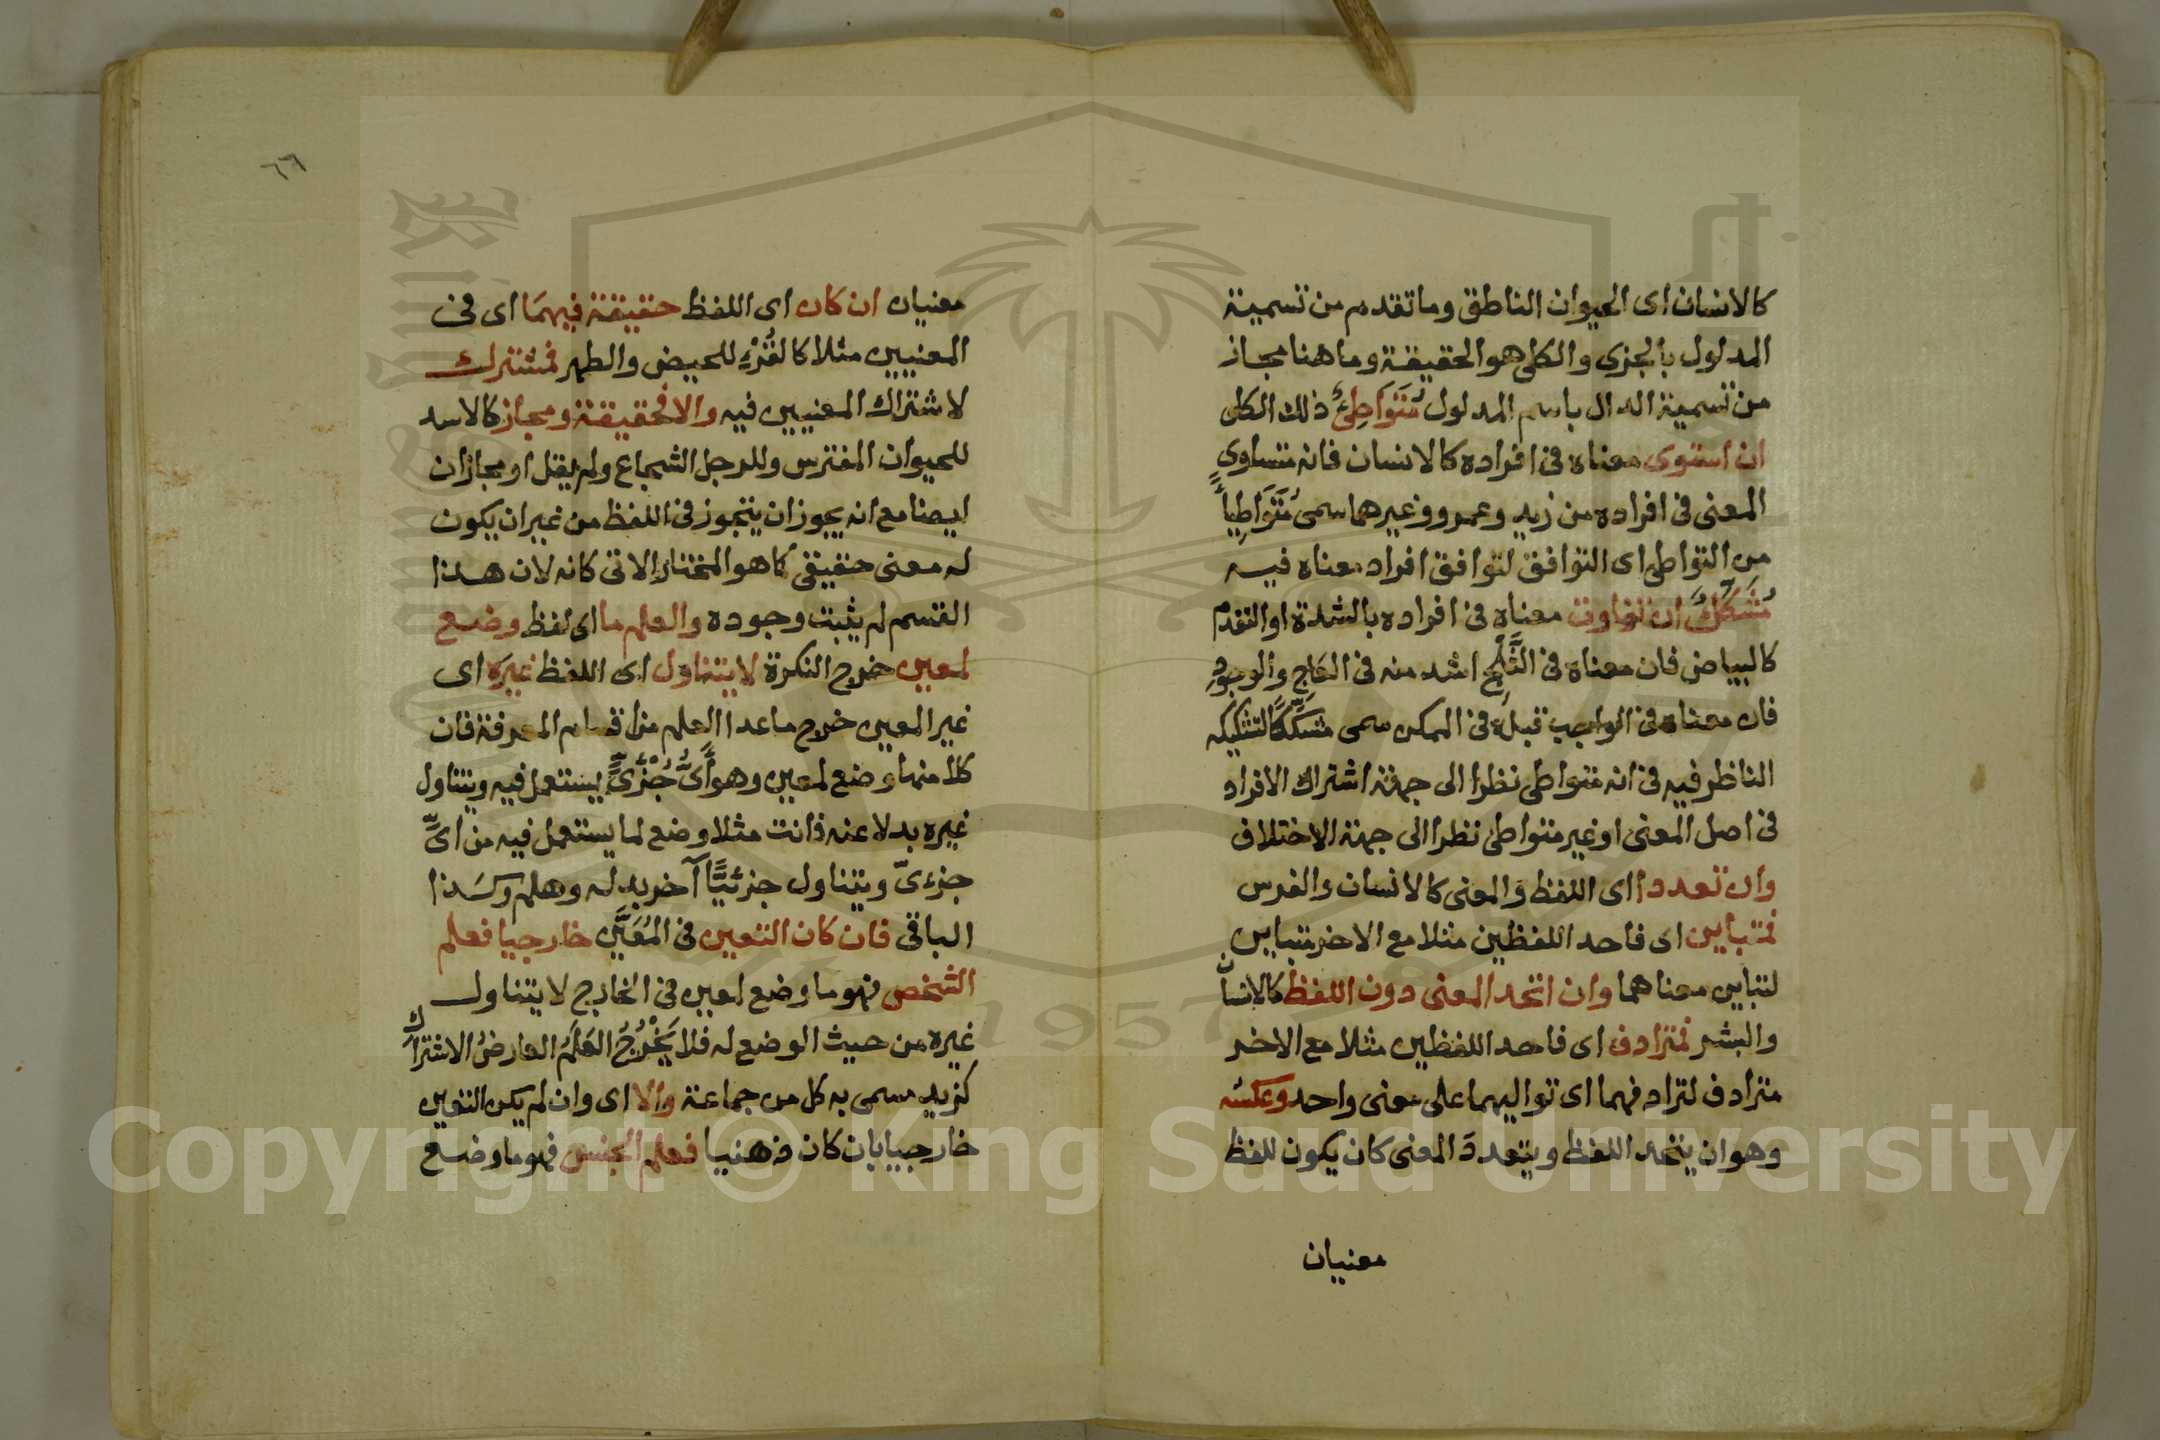 كالانسان اى الحيوان الناطق وما تقدم من تسمية
المدلول بالجزى والكلى هو الحقيقة وما هنا مجاز
من تسمية الدال باسم المدلول مُتَوَاطِئٌ ذلك الكلى
ان استوى معناه فى افراده كالانسان فانه متساوى
المعنى فى افراده من زيد وعمرو وغيرهما سمى مُتَوَاطِيأً
من التواطئ اى التوافق لتوافق افراد معناه فيه
مُشَكِّكٌ ان تفاوت معناه فى افراده بالشدة او التقدم
كالبياض فان معناه فى الثَّلْجِ اشد منه فى العَاجِ والوجودِ
فان معناه فى الواجب قبله فى الممكن سمى مشكِّكًا لتشكيكه
الناظر فيه فى انه متواطئ نظرا الى جهة اشتراك الافراد
فى اصل المعنى او غير متواطئ نظرا الى جهة الاختلاف
وان تعددا اى اللفظ والمعنى كالانسان والفرس
فمتباين اى فاحد اللفظين مثلا مع الاخر متباين
لتباين معناهما وان اتحد المعنى دون اللفظ كالانسان
والبشر فمترادف اى فاحد اللفظين مثلا مع الاخر
مترادف لترادفهما اى تواليهما على معنى واحد وعكسه
وهو ان يتحد اللفظ ويتعددَ المعنى كان يكون للفظ
معنيان
٦٦
معنيان ان كان اى اللفظ حقيقة فيهمَا اى فى
المعنيين مثلا كالقُرْءِ للحيض والطهر فمشترك
لاشتراك المعنيين فيه والا فحقيقة ومجاز كالاسد
للحيوان المفترس وللرجل الشجاع ولم يقل او مجازان
ايضا مع انه يجوز ان يتجوز فى اللفظ من غير ان يكون
له معنى حقيقى كما هو المختار الاتى كانه لان هذا
القسم لم يثبت وجوده والعلم ما اى لفظ وضع
لمعين خرج النكرة لا يتناول اى اللفظ غيره اى
غير المعين خرج ماعدا العلم من اقسام المعرفة فان
كلا منها وضع لمعين وهو أَىُّ جُزْئىٍّ يستعمل فيه ويتناول
غيره بدلا عنه فانت مثلا وضع لما يستعمل فيه من اىِّ
جزءىّ ويتناول جزئيًّا آخر بدله وهلم وكَذا
الباقى فان كان التعين فى المُعَيَّنِ خارجيا فعلم
الشخص فهو ما وضع لمعين فى الخارج لا يتناول
غيره من حيث الوضع له فلا يَخْرُجُ العَلَمُ العارضُ الاشتراك
كزيد سمى به كل من جماعة والا اى وان لم يكن التعين
خارجيا بان كان ذهنيا فعلم الجنس فهو ما وضع
Copyright © King Saud University
1957